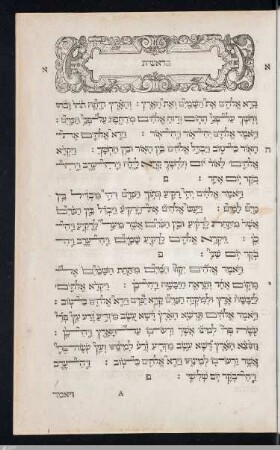 בראשית
א
א
ברא אלהים את השמים ואת הארץ: והארץ היתה תהו ובהו
וחשך על־פני תהום ורוח אלהים מרחפת על־פני המים:
ויאמר אלהים יהי־אור ויהי־אור: וירא אלהים את־
האור כי־טוב ויבדל אלהים בין האור ובין החשך: ויקרא ה
אלהים לאור יום ולחשך קרא לילה ויהי־ערב ויהי־
בקר יום אחד: פ
ויאמר אלהים יהי רקיע בתוך המים ויהי מבדיל בין
מים למים: ויעש אלהים את־הרקיע ויבדל בין המים
אשר מתחת לרקיע ובין המים אשר מעל לרקיע ויהי־
כן: ויקרא אלהים לרקיע שמים ויהי־ערב ויהי־
בקר יום שני: פ
ויאמר אלהים יקוו המים מתחת השמים אל־
מקום אחד ותראה היבשה ויהי־כן: ויקרא אלהים
ליבשה ארץ ולמקוה המים קרא ימים וירא אלהים כי־טוב:
ויאמר אלהים תדשא הארץ דשא עשב מזריע זרע עץ פרי
עשה פרי למינו אשר זרעו־בו על־הארץ ויהי־כן:
ותוצא הארץ דשא עשב מזריע זרע למינהו ועץ עשה־פרי
אשר זרעו־בו למינהו וירא אלהים כי־טוב: ויהי־ערב
ויהי־בקר יום שלישי: פ
A ויאמר